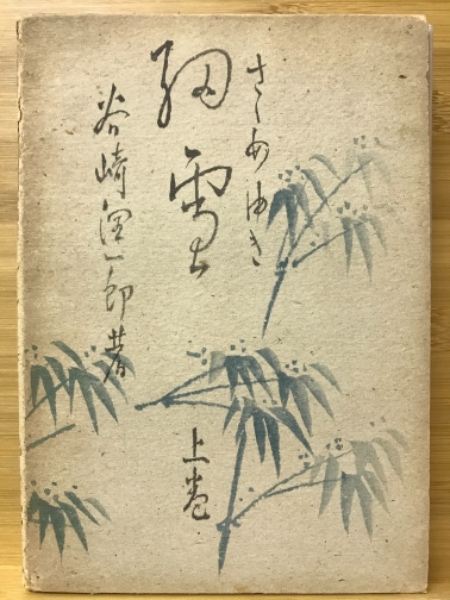 さゝめゆき
細雪
上巻
谷崎潤一郎著